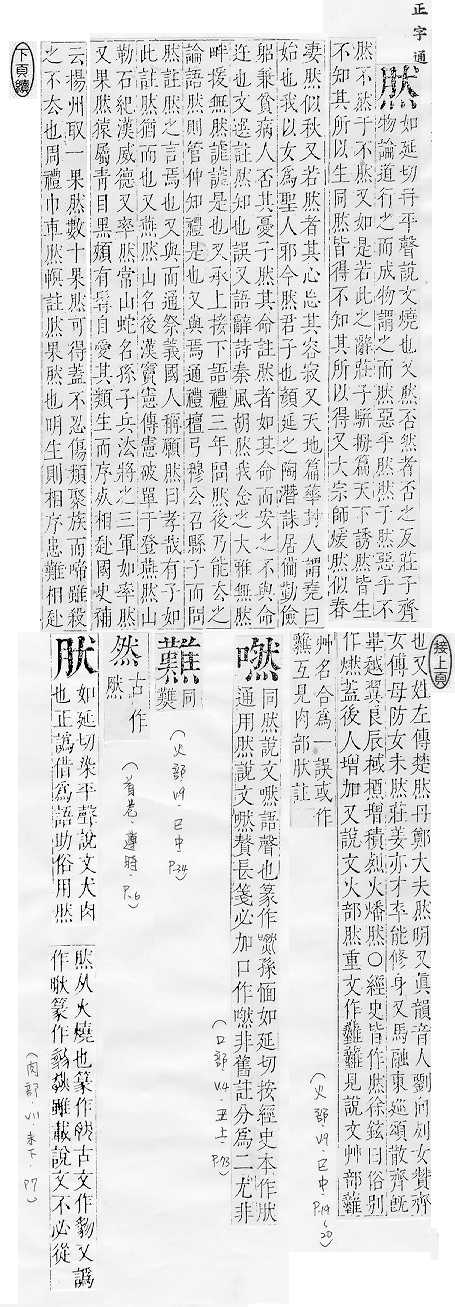 正字通
然 如延切冉平聲說文燒也又然否然者否之反莊子齊
物論道行之而成物謂之而然惡乎然然于然惡乎不
然不然于不然又如是若此之辭莊子駢拇篇天下誘然皆生
不知其所以生同然皆得不知其所以得又大宗師煖然似春
淒然似秋又若然者其心忘其容寂又天地篇華封人謂堯曰
始也我以女為聖人邪今然君子也顏延之陶潛誄居備勤儉
躬兼貧病人否其憂子然其命註然者如其命而安之不與命
迕也文選註然知也誤又語辭詩秦風胡然我念之大雅無然
畔援無然謔謔是也又承上接下語禮三年問然後乃能去之
論語然則管仲知禮是也又與焉通禮檀弓穆公召縣子而問
然註然之言焉也又與而通祭義國人稱願然曰孝哉有子如
此註然猶而也又燕然山名後漢竇憲傳憲破單于登燕然山
勒石紀漢威德又率然常山蛇名孫子兵法將之三軍如率然
又果然猿屬青目黑頰有髯自愛其類生而序死相赴國史補
云揚州取一果然數十果然可得蓋不忍傷類聚族而啼雖殺
之不去也周禮巾車然㡓註然果然也明生則相序患難相赴
下頁續
接上頁
也又姓左傳楚然丹鄭大夫然明又眞韻音人劉向列女贊齊
女傅母防女未然莊姜亦才卒能修身又馬融東巡頌散齊既
畢越翼良辰棫樸增積烈火燔然○經史皆作然徐鉉曰俗別
作燃蓋後人增加又說文火部然重文作見說文艸部
艸名合為一誤或作
互見肉部肰註
(火部.v9.巳中.P.19~20)
嘫 同然說文嘫語聲也篆作孫愐如延切按經史本作肰
通用然說文嘫贅長箋必加口作嘫非舊註分為二尤非
(口部.v4.丑上.P.73)
同
(火部.v9.巳中.P.34)
然 古作
然
(首卷.遵時.P.6)
肰 如延切染平聲說文犬肉
也正譌借為語助俗用然
然从火燒也篆作古文作又譌
作篆作雖載說文不必從
(肉部.v11.未下.P.7)